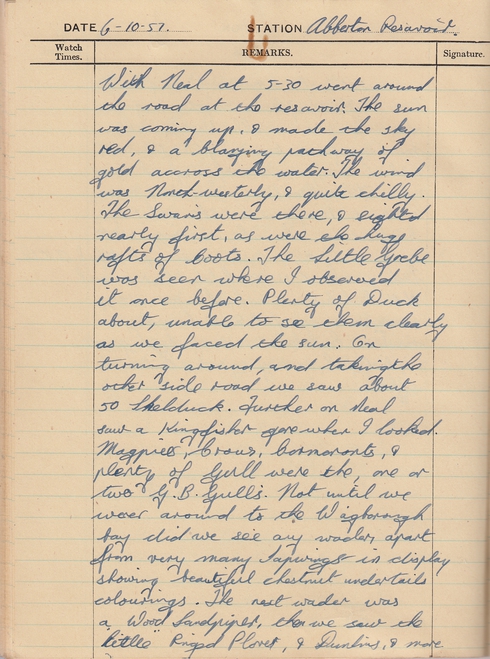 DATE 6-10-57. STATION Abberton Resavoir.
Watch Times. REMARKS. Signature.
With Neal at 5-30 went around
the road at the resavoir. The sun
was coming up, & made the sky
red, & a blazing pathway of
gold accross the water. The wind
was North-westerly, & quite chilly.
The Swans were there, & sighted
nearly first, as were the huge
rafts of Coots. The Little Grebe
was seen where I observed
it once before. Plenty of Duck
about, unable to see them clearly
as we faced the sun. On
turning around, and taking the
other side road we saw about
50 Shelduck. Further on Neal
saw a Kingfisher gone when I looked.
Magpies, Crows, Cormorants, &
plenty of Gull were the, one or
two G.B. Gulls. Not until we
were around to the Wigborough
bay did we see any wader, apart
from very many Lapwings in display
showing beautiful chestnut undertails
colourings. The next wader was
a Wood Sandpiper, then we saw the
little Ringed Plover, & Dunlins, & more